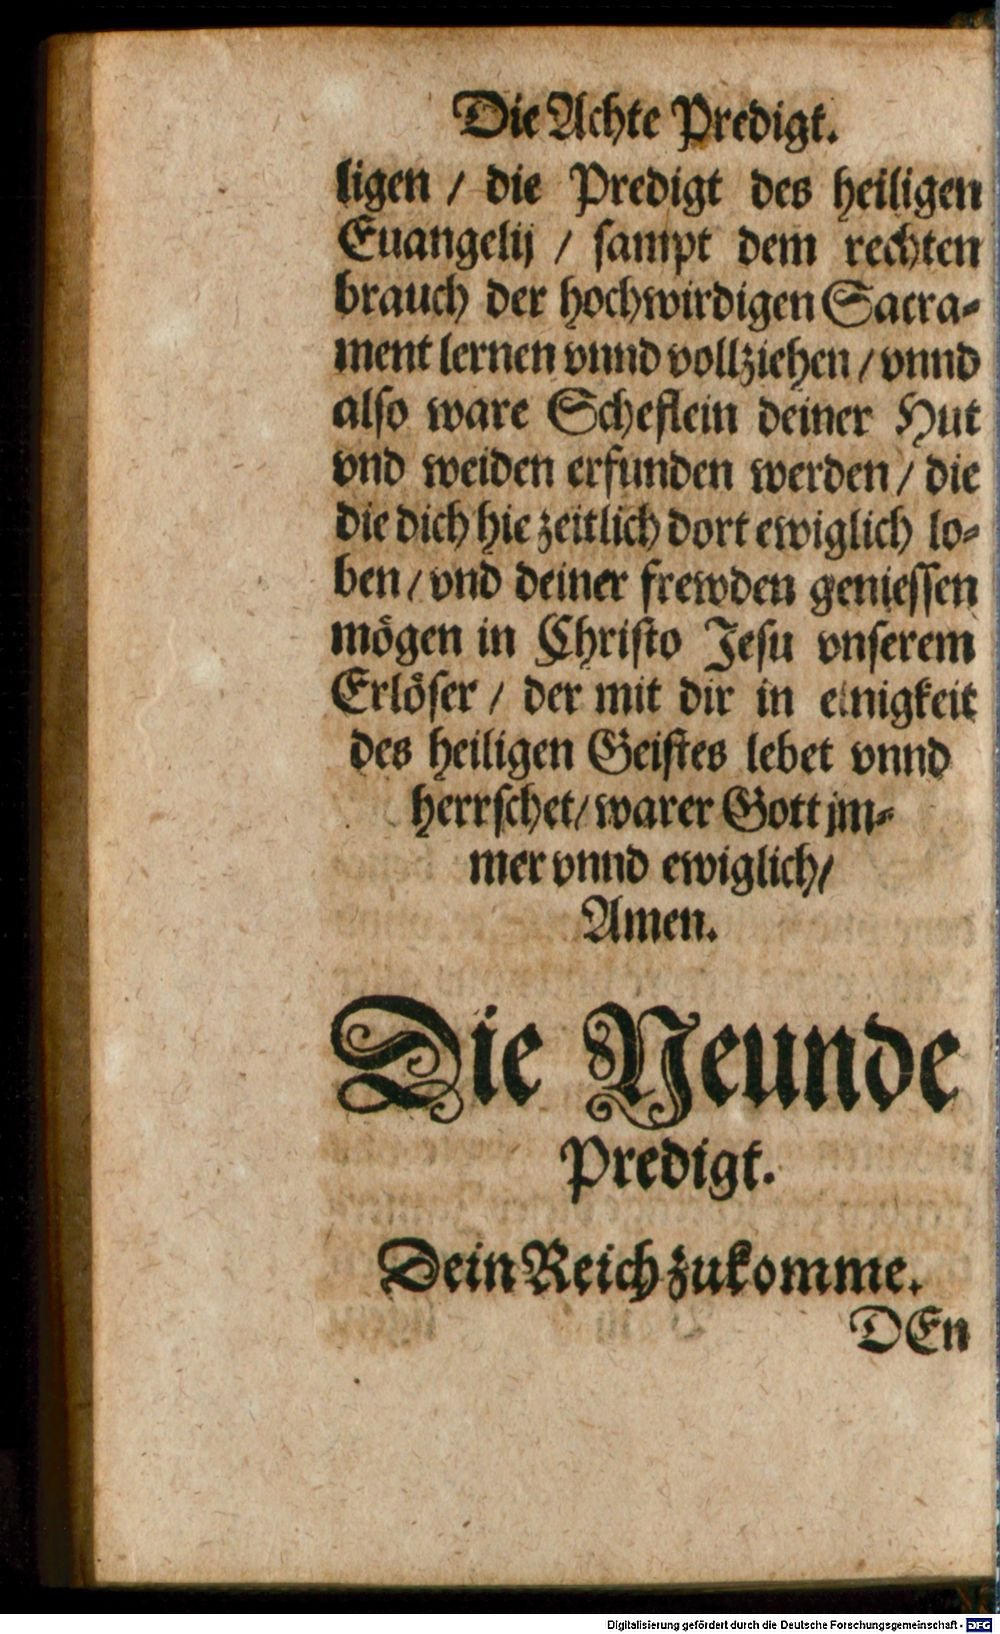 Die Achte Predigt.
ligen / die Predigt des heiligen
Euangelij / sampt dem rechten
brauch der hochwirdigen Sacra-
ment lernen vnnd vollziehen / vnnd
also ware Scheflein deiner Hut
vnd weiden erfunden werden / die
die dich hie zeitlich dort ewiglich lo-
ben / vnd deiner frewden geniessen
mögen in Christo Jesu vnserem
Erlöser / der mit dir in einigkeit
des heiligen Geistes lebet vnnd
herrschet / warer Gott jm-
mer vnnd ewiglich /
Amen.
Die Neunde
Predigt.
Dein Reich zukomme.
DEn
Digitalisierung gefördert durch die Deutsche Forschungsgemeinschaft - DFG